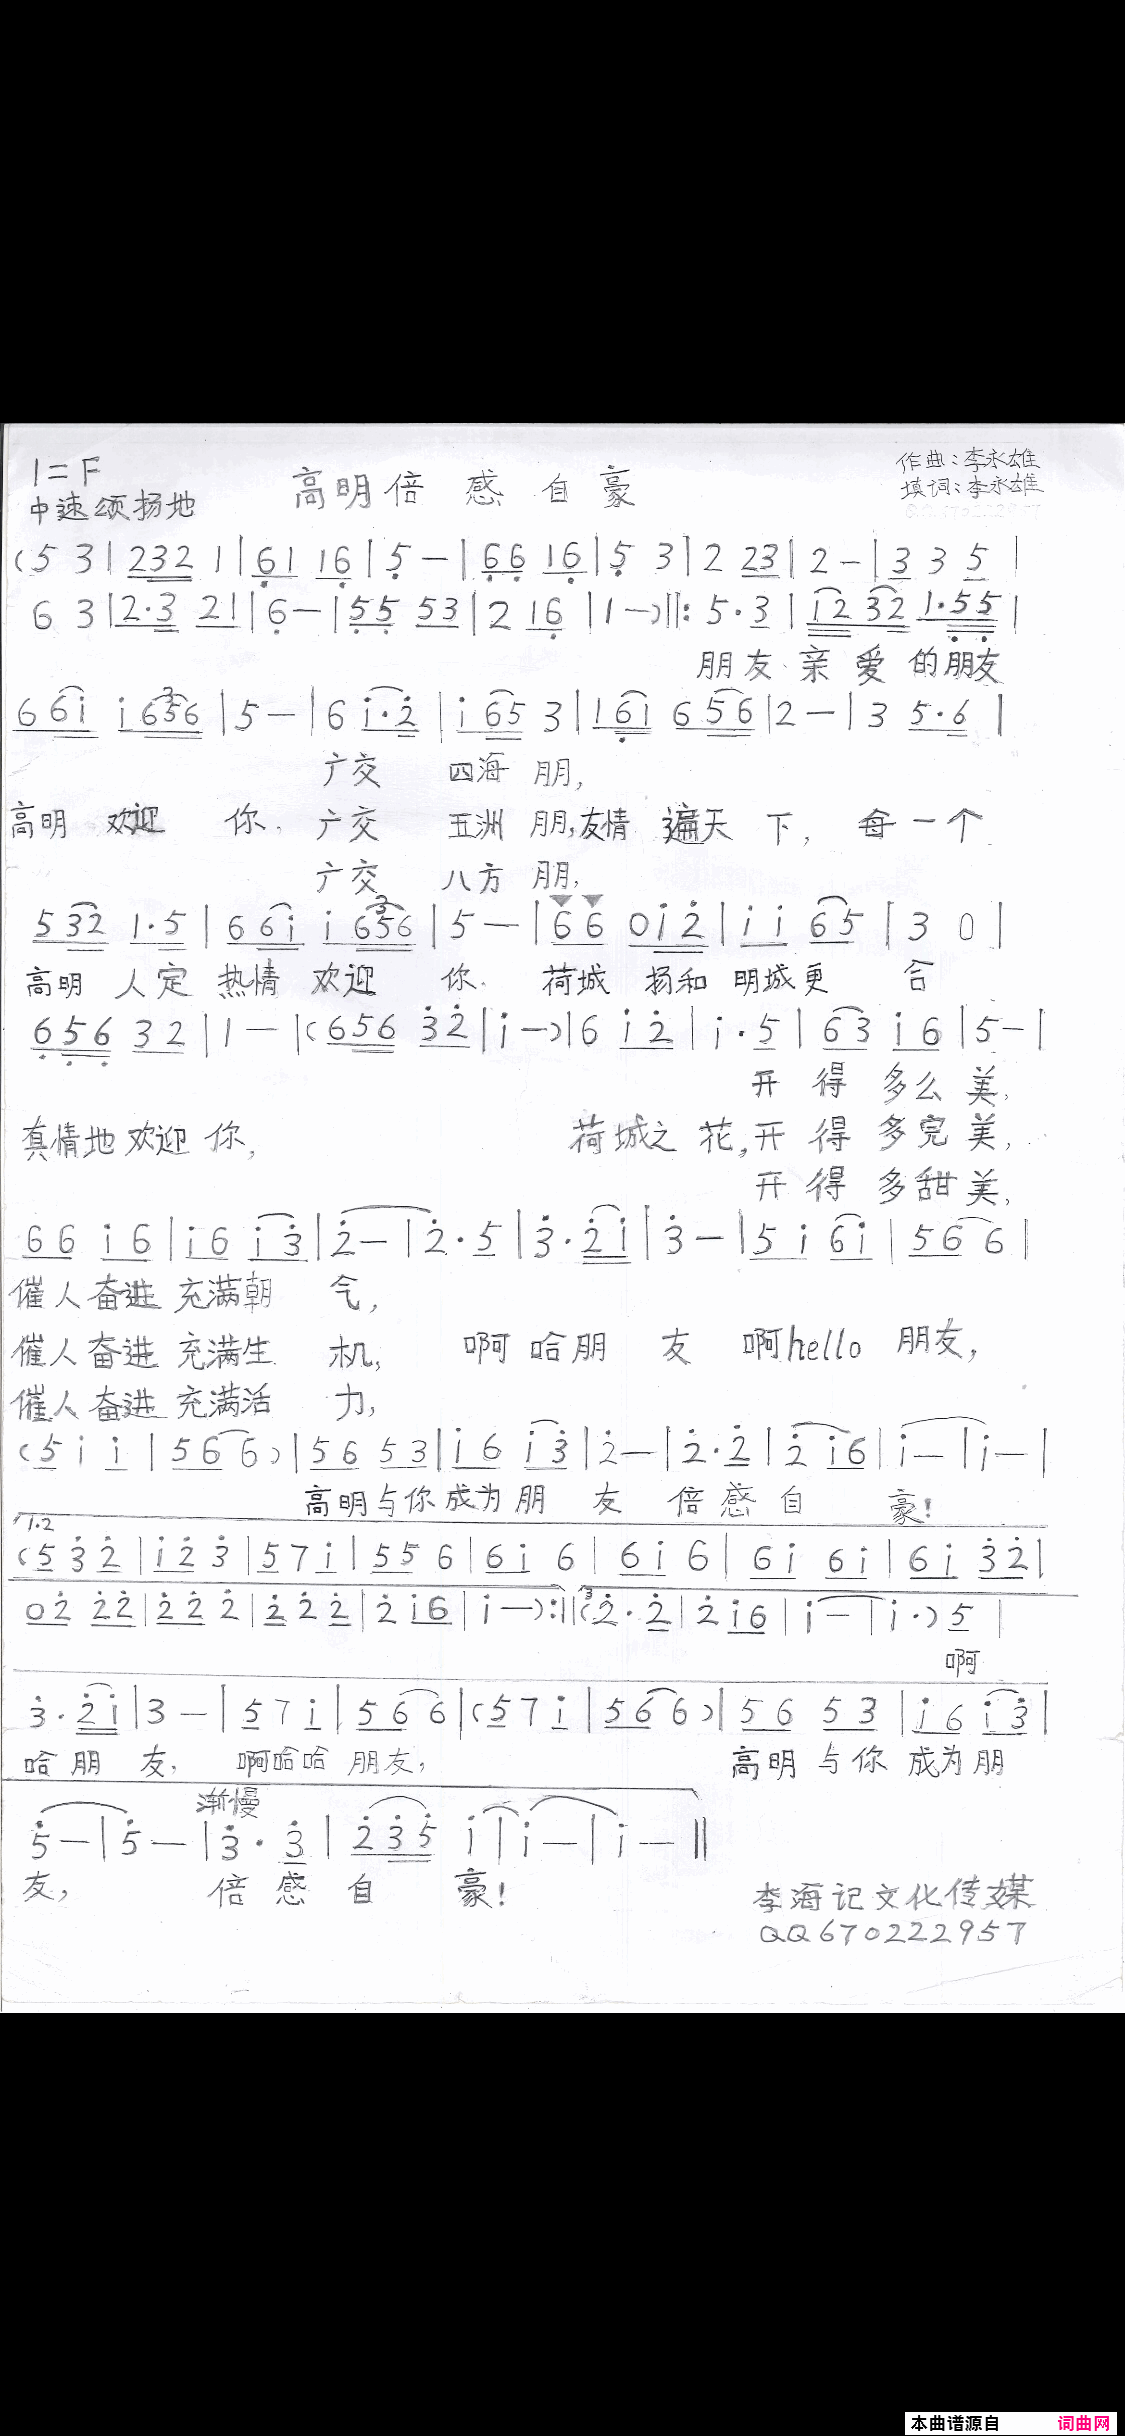 1=F
中速颂扬地
高明倍感自豪
作曲:李永雄
填词:李永雄
(5 3|232 1|61 16|5—|66 16|5 3|2 23|2—|3 3 5|
6 3|2·3 21|6—|55 53|2 16|1—)‖:5·3|12 32 1·55|
朋友 亲 爱 的朋友
6 61 1656|5—|6 1·2|1 65 3|161 656|2—|3 5·6|
广交 四海 朋,
高明 欢迎 你. 广交 五洲 朋,友情 遍天 下, 每一个
广交 八方 朋,
5 32 1·5|6 61 1656|5—|66 012|11 65|3 0|
高明 人定 热情 欢迎 你. 荷城 扬和 明城更 合
656 32|1—|(656 32|1—)|6 12|1·5|63 16|5—|
开 得 多么 美,
真情地欢迎 你, 荷城之 花,开 得 多完 美,
开 得 多甜 美,
66 16|16 13|2—|2·5|3·21|3—|51 61|56 6|
催人奋进 充满朝 气,
催人奋进 充满生 机, 啊 哈朋 友 啊hello 朋友,
催人奋进 充满活 力,
(5 1 1|56 6)|56 53|16 13|2—|2·2|2 16|1—|1—|
高明与你成为朋 友 倍感自 豪!
1.2
(5 3 2|1 2 3|5 7 1|55 6|61 6|61 6|61 61|61 32|
02 22|22 2|2 2 2|2 16|1—):‖(2·2|2 16|1—|1·)5|
3
啊
3·21|3—|5 7 1|56 6|(5 7 1|56 6)|56 53|16 13|
哈朋 友, 啊哈哈 朋友, 高明 与你 成为朋
渐慢
5—|5—|3·3|235 1|1—|1—‖
友, 倍感 自 豪!
李海记文化传媒
QQ670222957
本曲谱源自 词曲网